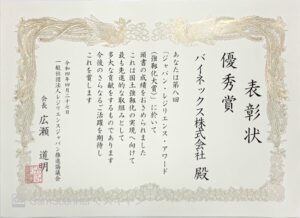 表彰状
優秀賞
バイネックス株式会社 殿
あなたは第八回
「ジャパン・レジリエンス・アワード
(強靭化大賞)」に於いて
頭書の成績をおさめられました
これは国土強靭化の実現へ向けて
最も先進的な取組みとして
多大な貢献をするものであります
今後のさらなるご活躍を期待し
これを賞します
令和四年四月二十七日
一般社団法人レジリエンスジャパン推進協議会
会長 広瀬 道明